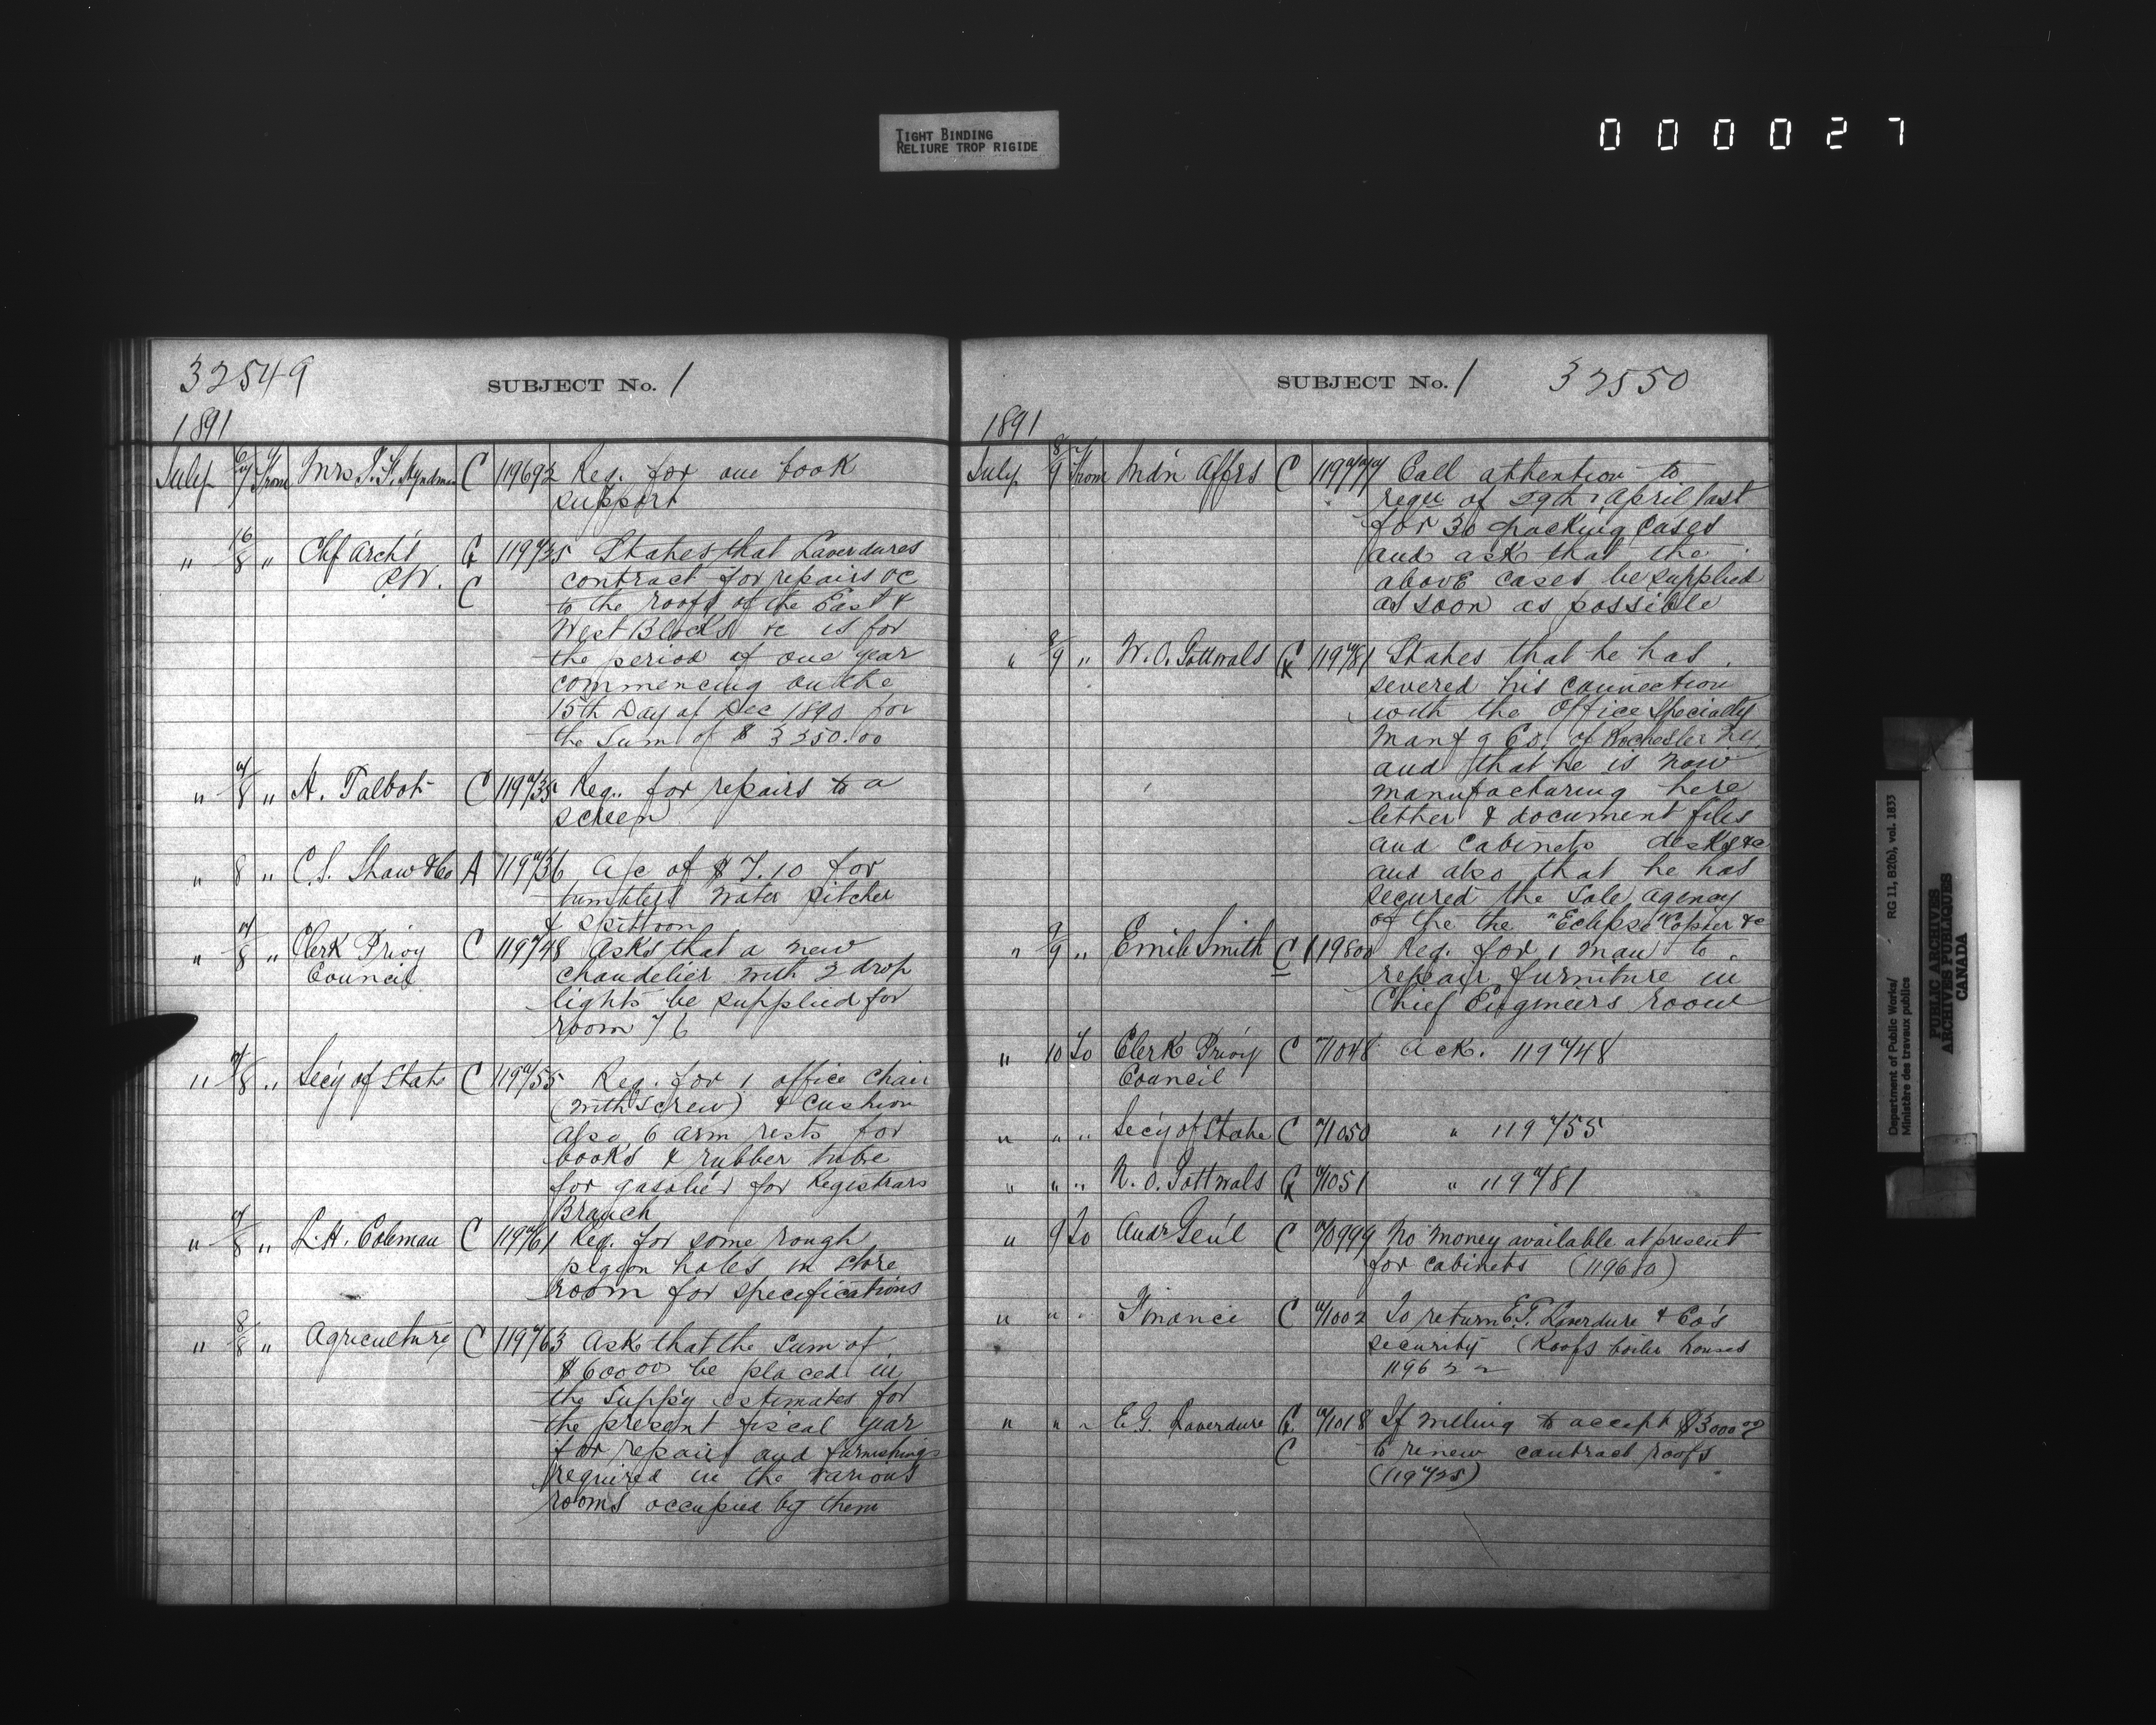 TIGHT BINDING
RELIURE TROP RIGIDE
000027
32549
SUBJECT No. 1
1891
July 6/7 From Mrs T. F. C 119692 Req. for one book
support
" 16/8 " Chf Arch't G 119735 States that Laverdures
P.W. C contract for repairs &c
to the roofs of the East &
West Blocks &c is for
the period of one year
commencing on the
15th Day of Dec 1890 for
the sum of $ 3350.00
" 7/8 " H. Talbot C 119735 Req. for repairs to a
screen
" 8 " C. S. Shaw & Co A 119736 A/c of $ 7.10 for
tumblers water pitcher
& spittoon
" 7/8 " Clerk Privy C 119748 Asks that a new
Council chandelier with 2 drop
lights be supplied for
room 76
" 7/8 " Sec'y of State C 119755 Req. for 1 office chair
(with screw) & cushion
also 6 arm rests for
books & rubber tube
for gasolier for Registrars
Branch
" 7/8 " L. H. Coleman C 119761 Req. for some rough
pigeon holes in store
room for specifications
" 8/8 " Agriculture C 119763 Ask that the sum of
$6000.00 be placed in
the Supp'y estimates for
the present fiscal year
for repairs and furnishings
required in the various
rooms occupied by them
SUBJECT No. 1
32550
1891
July 8/9 From Indn Affrs C 119777 Call attention to
requ of 29th April last
for 30 packing cases
and ask that the
above cases be supplied
as soon as possible
" 8/9 " W. O. Gottwals 119781 States that he has
severed his connection
with the Office Specialty
Manf'g Co. of Rochester N.Y.
and that he is now
manufacturing here
letter & document files
and cabinets desks &c
and also that he has
secured the sole agency
of the the "Eclipse" Copier &c
" 9/9 " Emile Smith C 119800 Req. for 1 man to
repair furniture in
Chief Engineers room
" 10 To Clerk Privy C 71048 Ack. 119748
Council
" " " Sec'y of State C 71050 " 119755
" " " W. O. Gottwals 71051 " 119781
" 9 To Audr Gen'l C 70999 No money available at present
for cabinets (119610)
" " " Finance C 71002 To return E. G. Laverdure & Co's
security (Roofs boiler houses
119622
" " " E. G. Laverdure G 71018 If willing to accept $3000.00
C to renew contract roofs
(119725)
Department of Public Works/
Ministère des travaux publics
RG 11, B2(b), vol. 1833
PUBLIC ARCHIVES
ARCHIVES PUBLIQUES
CANADA